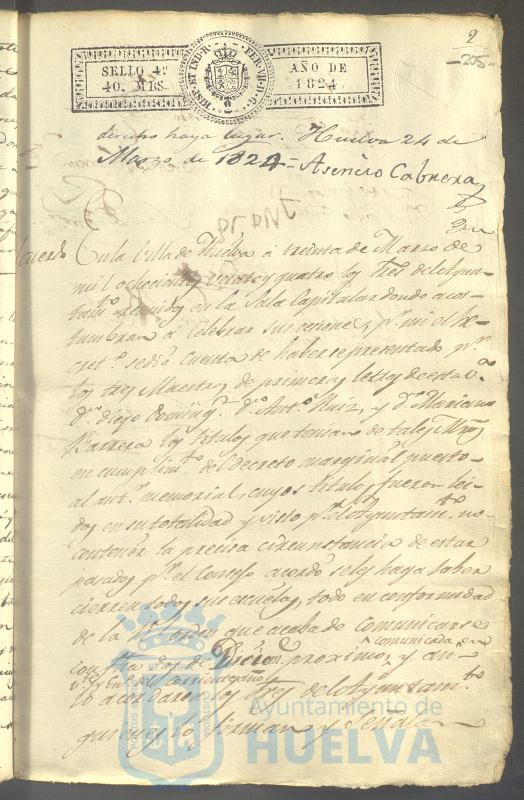 2
205
SELLO 4º
40. MRS.
HISP. ET IND. R. FER. VII D. G.
AÑO DE
1824
derecho haya lugar. Huelva 24 de
Marzo de 1824 = Asencio Cabrera
Acuerdo En la Villa de Huelva á treinta de Marzo de
mil ochocientos veinte y quatro los Sres del Ayun-
tamto reunidos en la Sala Capitular donde acos-
tumbran á celebrar sus cesiones, pr mi el Se-
cretº se dió cuenta de haberse presentado pr
los tres Maestros de primeras letras de esta Vª
Dn Diego Dn Antº Ruiz, y Dn Mariano
Barrera los titulos que tenian de tales Mros
en cumplimtº del decreto marginal puesto
al antr memorial, cuyos titulos fueron lei-
dos en su totalidad y visto pr el Ayuntamtº no
contener la precisa circunstancia de estar
pasados pr el Consejo acordó se les haga saber
cierren todos sus escuelas, todo en conformidad
de la Rl orden que acaba de comunicarse
con fha de Dicien proximo, y comunicada en
asi
lo acordaron los Sres de este Ayuntamtº
que lo firman y señalan
Ayuntamiento de
HUELVA